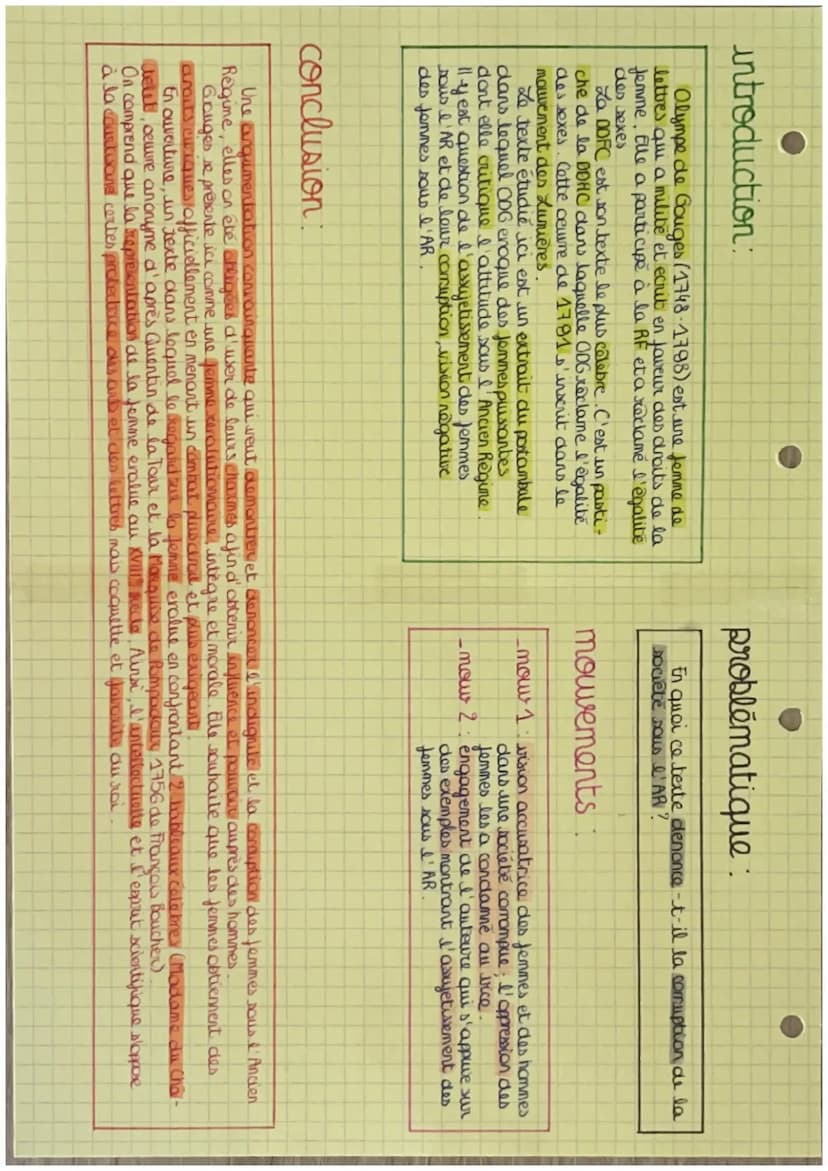 introduction :
Olympe de Gouges (1748-1793) est une femme de
lettres qui a milité et écrit en faveur des droits de la
femme. Elle a participé à la RF et a réclamé l'égalité
des sexes
La DDFC est son texte le plus célèbre. C'est un pasti-
che de la DDHC dans laquelle ODG réclame l'égalité
des sexes. Cette oeuvre de 1791 s'inscrit dans le
mouvement des Lumières.
Le texte étudié ici est un extrait du postambule
dans lequel ODG evoque des femmes puissantes
dont elle critique l'attitude sous l'Ancien Régime.
Il y est question de l'assujetissement des femmes
sous l'AR et de leur corruption, vision négative
des femmes sous l'AR.
problématique :
En quoi ce texte dénonce-t-il la corruption de la
société sous l'AR ?
mouvements :
- mouv 1 : vision accusatrice des femmes et des hommes
dans une société corrompue ; l'oppression des
femmes les a condamné au vice.
- mouv 2 : engagement de l'auteure qui s'appuie sur
des exemples montrant l'assujetissement des
femmes sous l'AR.
conclusion :
Une argumentation convainquante qui veut démontrer et dénoncer l'indignité et la corruption des femmes sous l'Ancien
Régime, elles on été obligées d'user de leurs charmes afin d'obtenir influence et pouvoir auprès des hommes.
Gouges se présente ici comme une femme révolutionnaire, intègre et morale. Elle souhaite que les femmes obtiennent des
droits civiques officiellement en menant un combat plus direct et plus exigeant.
En ouverture, un texte dans lequel le regard sur la femme evolue en confrontant 2 tableaux célèbres (Madame du Châ-
telet, oeuvre anonyme d'après Quentin de la Tour et la Marquise de Pompadour 1756 de François Boucher)
On comprend que la représentation de la femme evolue au XVIIIe siècle. Ainsi, l'intellectuelle et l'esprit scientifique s'oppose
à la courtisane certes protectrice des arts et des lettres mais coquette et favorite du roi.